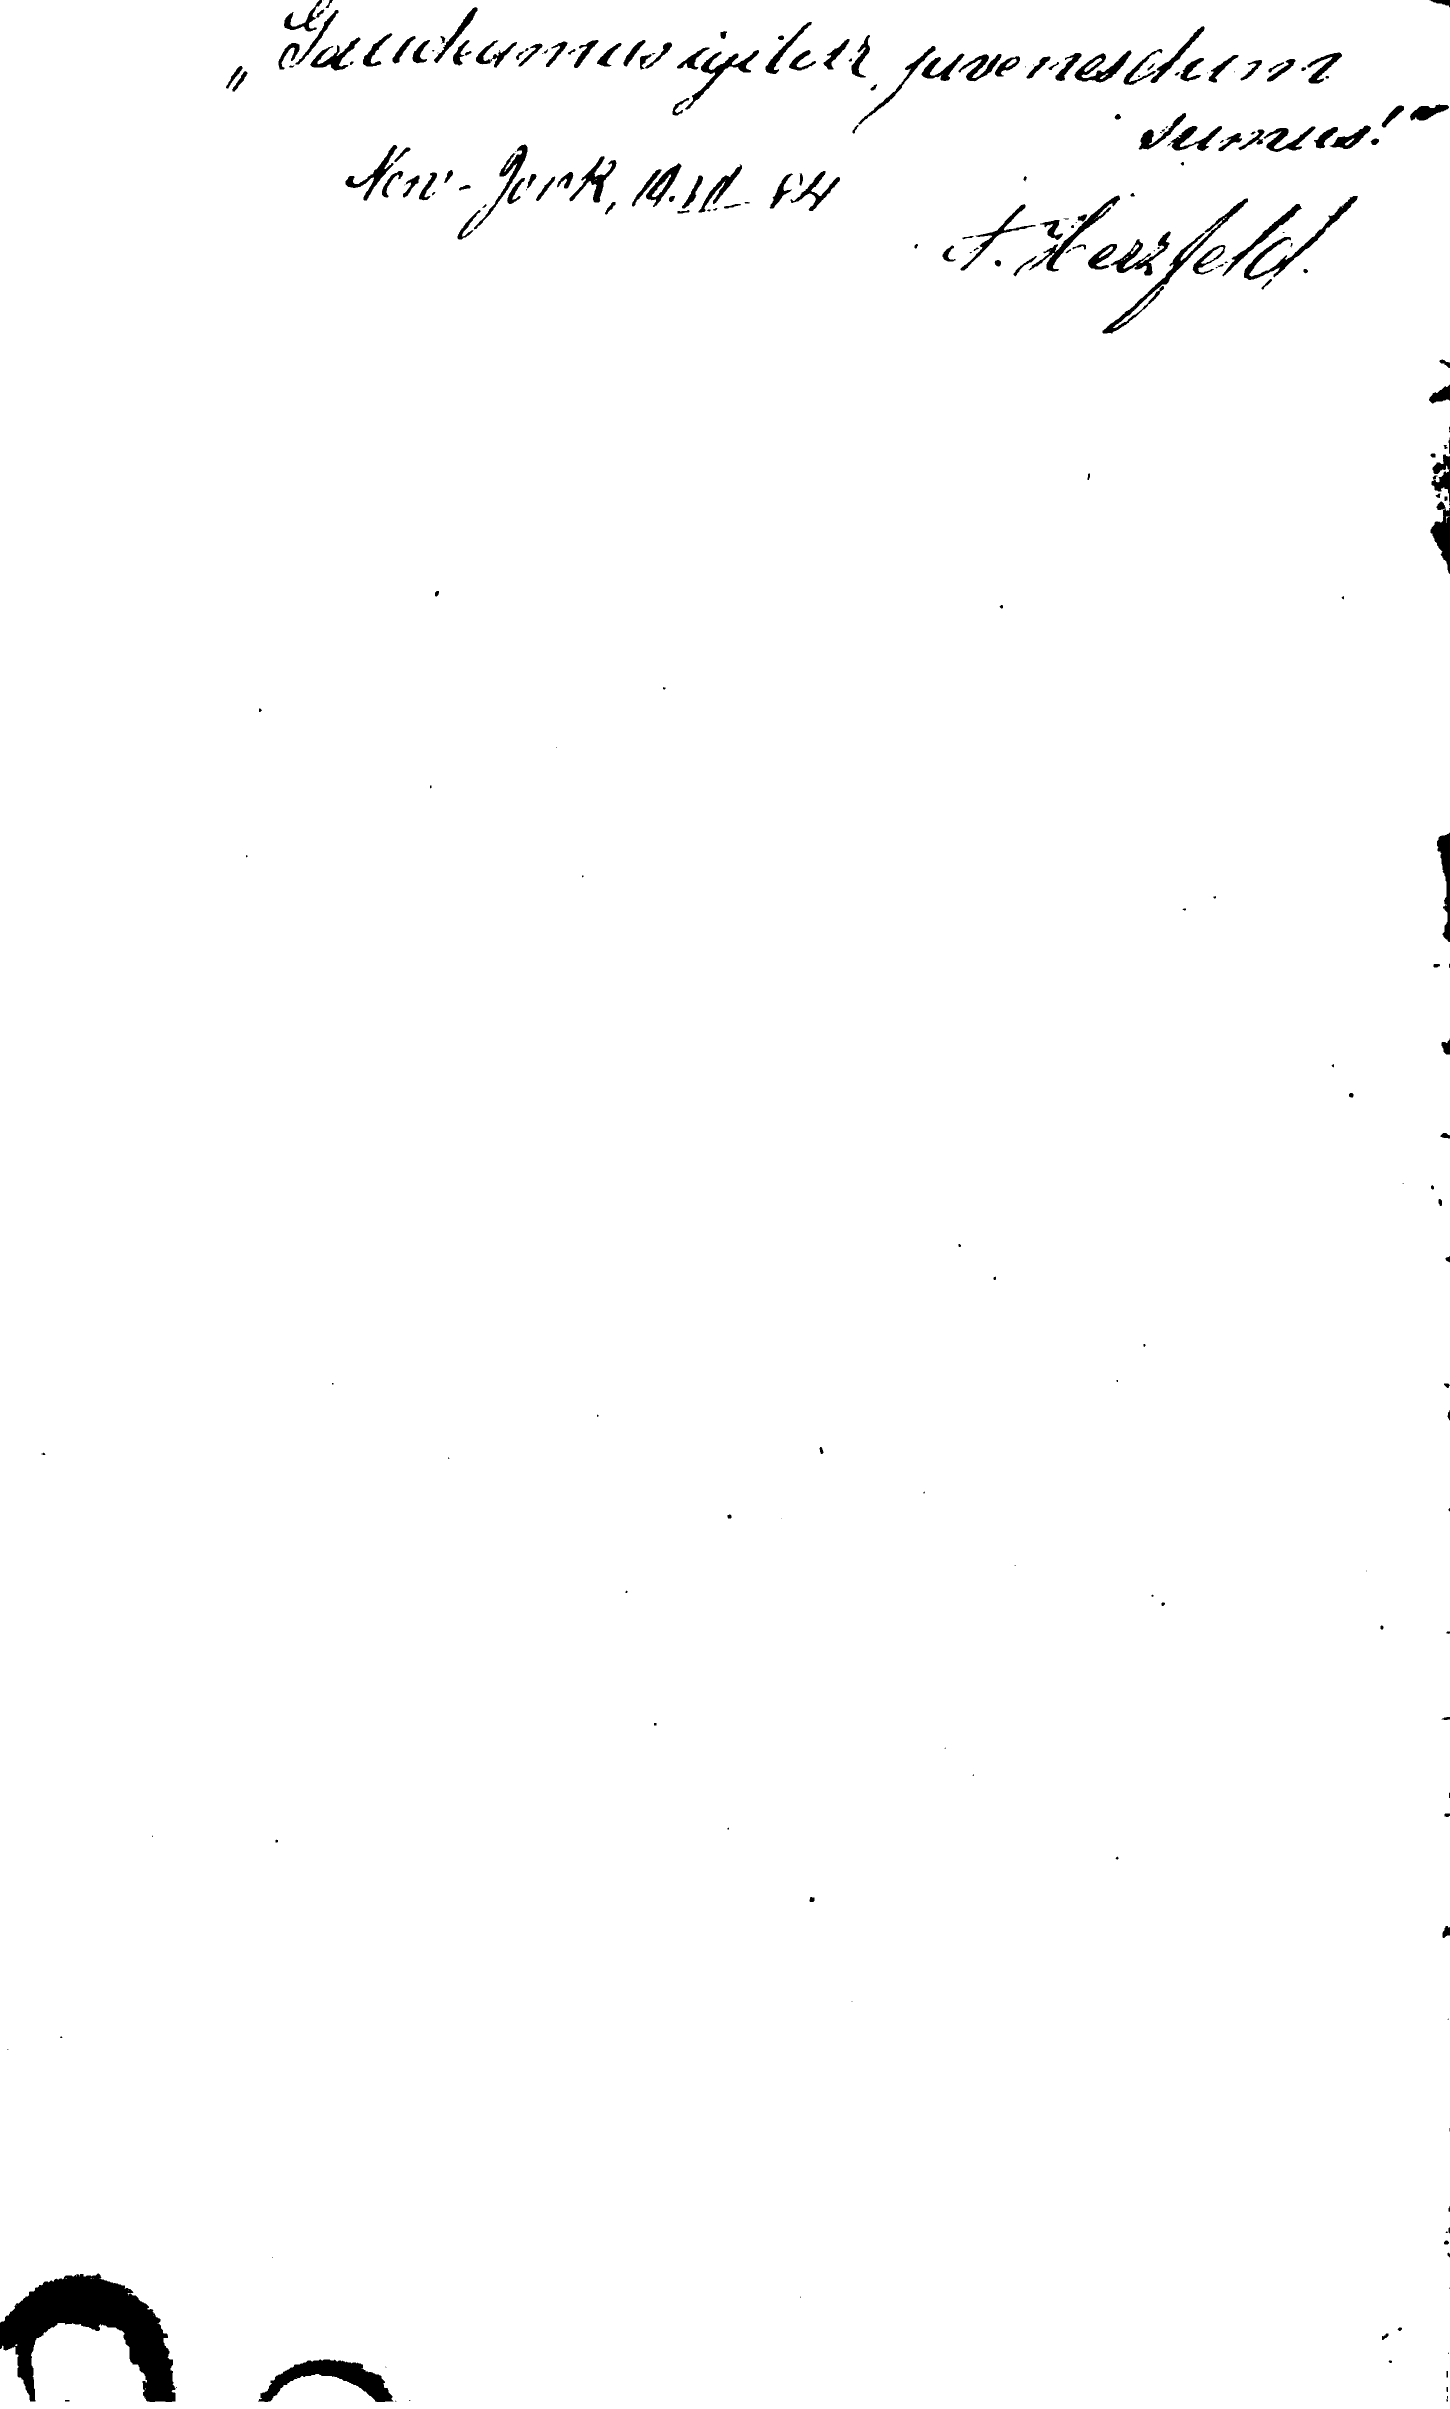 „Gaudeamus igitur, juvenes dum
sumus!“
New-York,
A. Herzfeld.